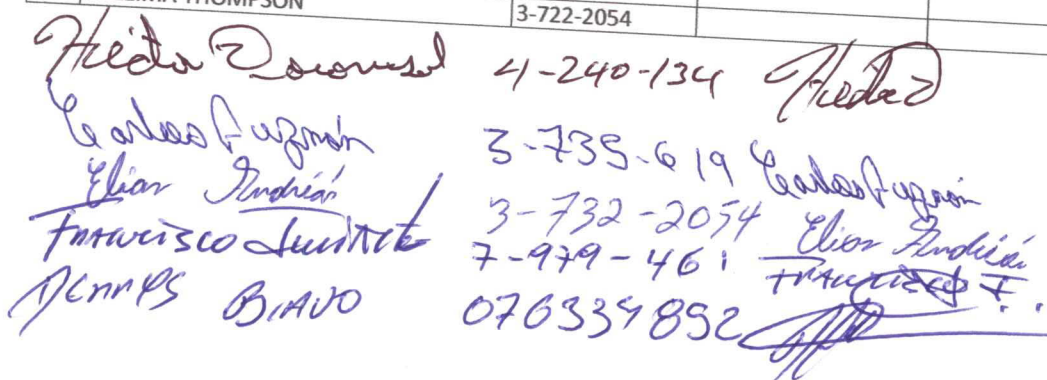 THOMPSON 3-722-2054
Héctor 4-240-134 Héctor
Carlos Guzmán 3-735-619 Carlos Guzmán
Elian Andrián 3-732-2054 Elian Andrián
Francisco 7-979-461
Dennys Bravo 076334892